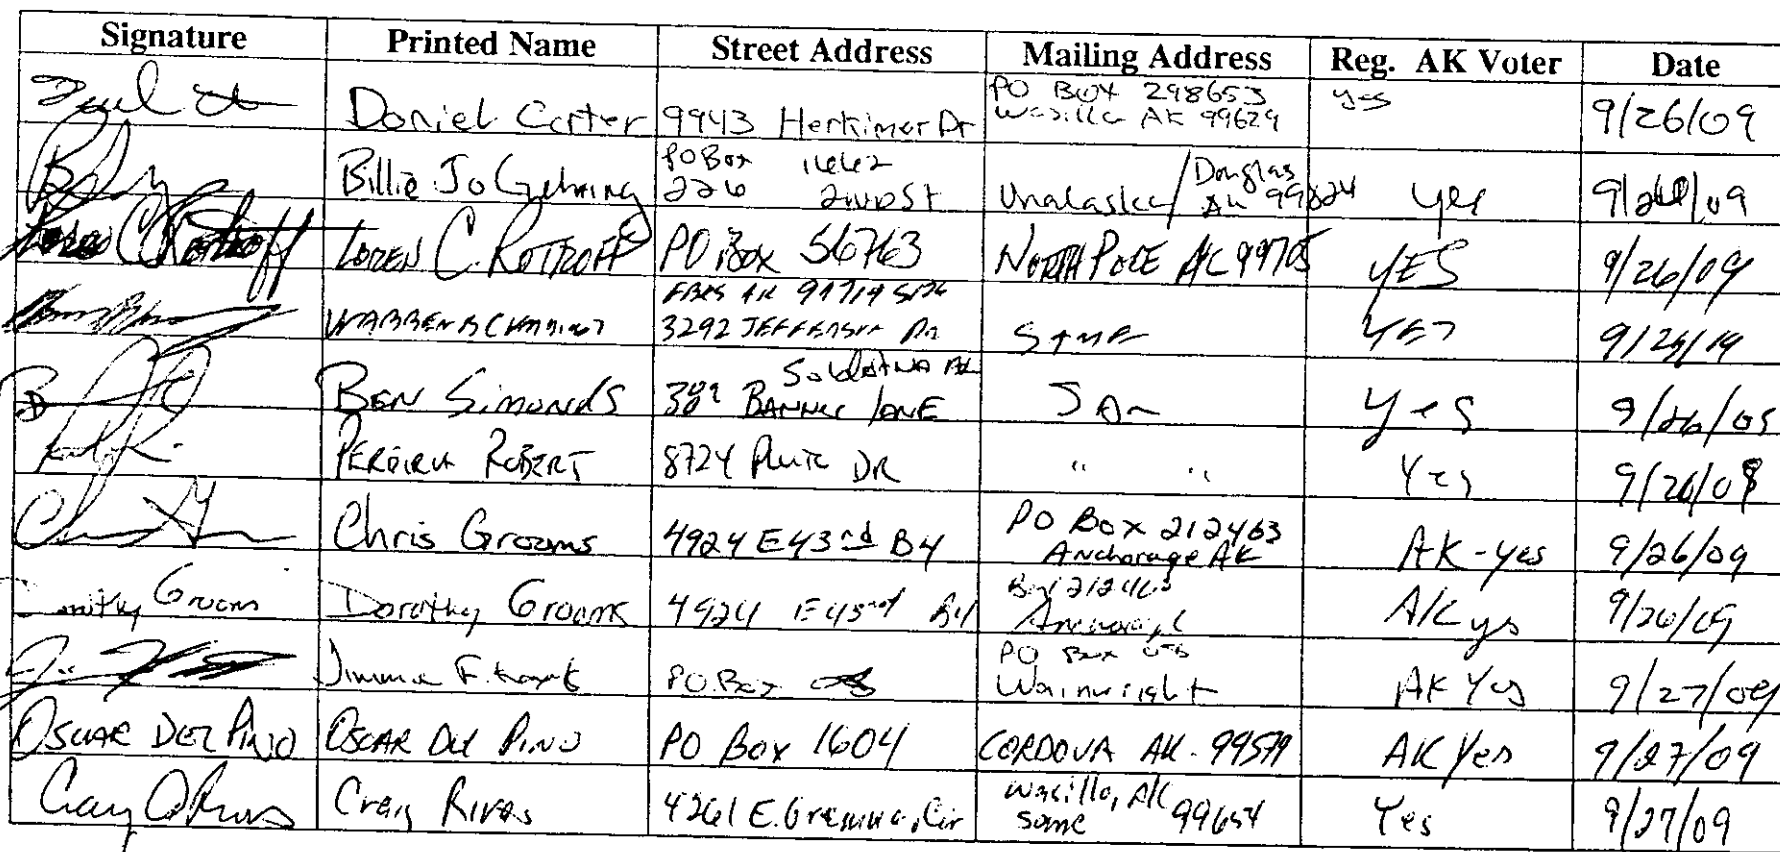 Signature Printed Name Street Address Mailing Address Reg. AK Voter Date
Daniel Carter 9943 Herkimer Dr PO BOX 298653 Wasilla AK 99629 yes 9/26/09
Billie Jo Gehring PO Box 1662 226 2ND St Unalaska / Douglas AK 99824 yes 9/26/09
Loren C. Rotroff LOREN C. ROTROFF PO Box 56763 NORTH POLE AK 99705 YES 9/26/09
WARREN FBKS AK 3292 JEFFERSON DR SAME YES
BEN SimondS Soldotna AK BANNER LANE YeS 9/26/09
ROBERT 8724 DR " " Yes 9/26/09
Chris Grooms 4924 E 43rd B4 PO Box 212463 Anchorage AK AK-yes 9/26/09
Dorothy Grooms Dorothy Grooms 4924 E 43rd B4 Box 212463 Anchorage AK ys 9/26/09
Jimmie F. PO Box PO Box Wainwright AK Yes 9/27/09
OSCAR DEL PINO OSCAR DEL PINO PO BOX 1604 CORDOVA AK. 99574 AK Yes 9/27/09
Craig Rivas 4261 E. Cir Wasilla, AK 99654 same Yes 9/27/09